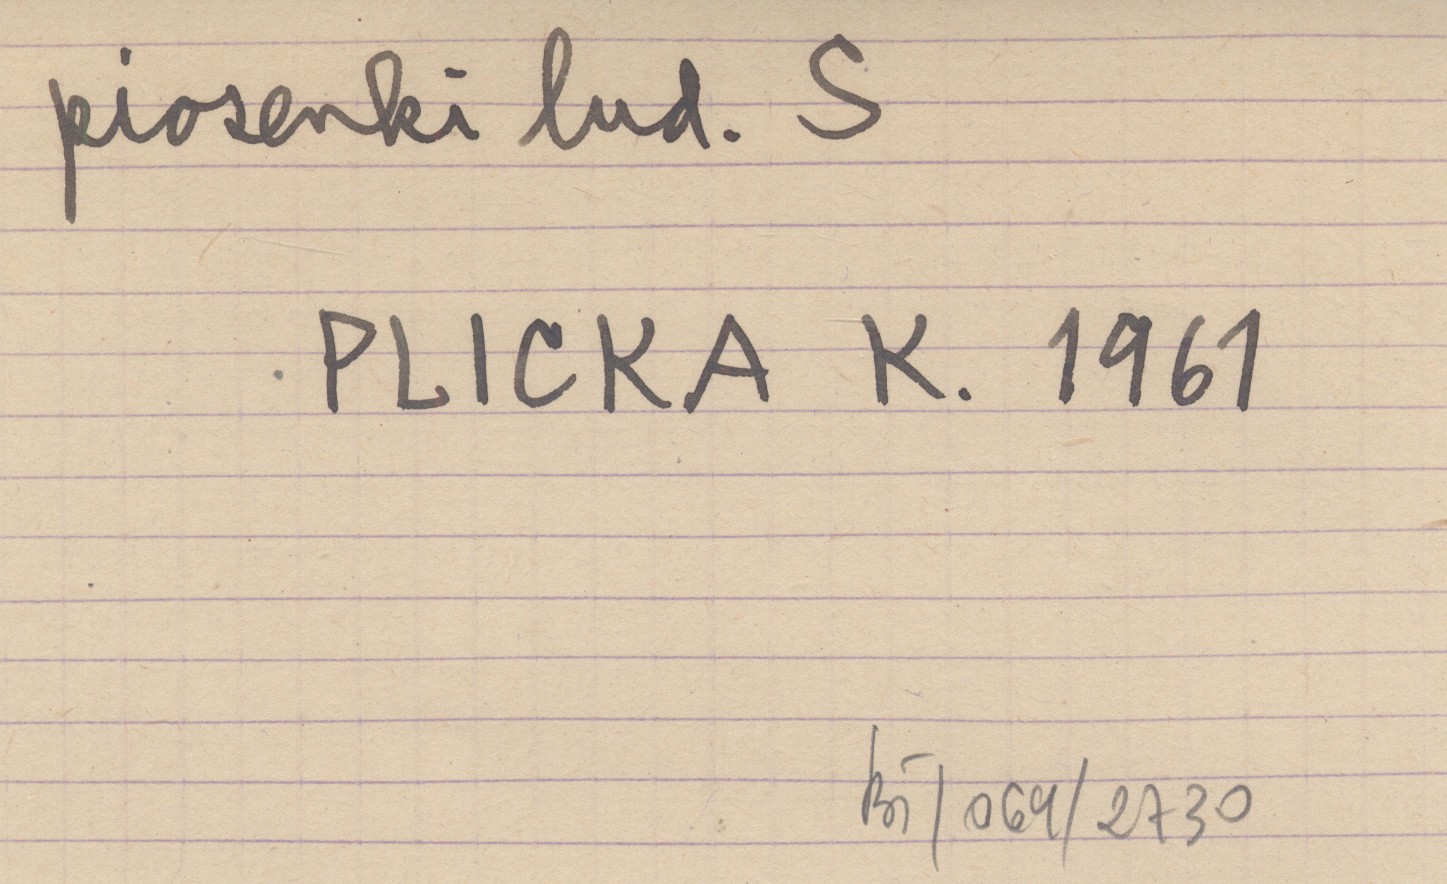 piosenki lud. S
PLICKA K. 1961
/064/2730